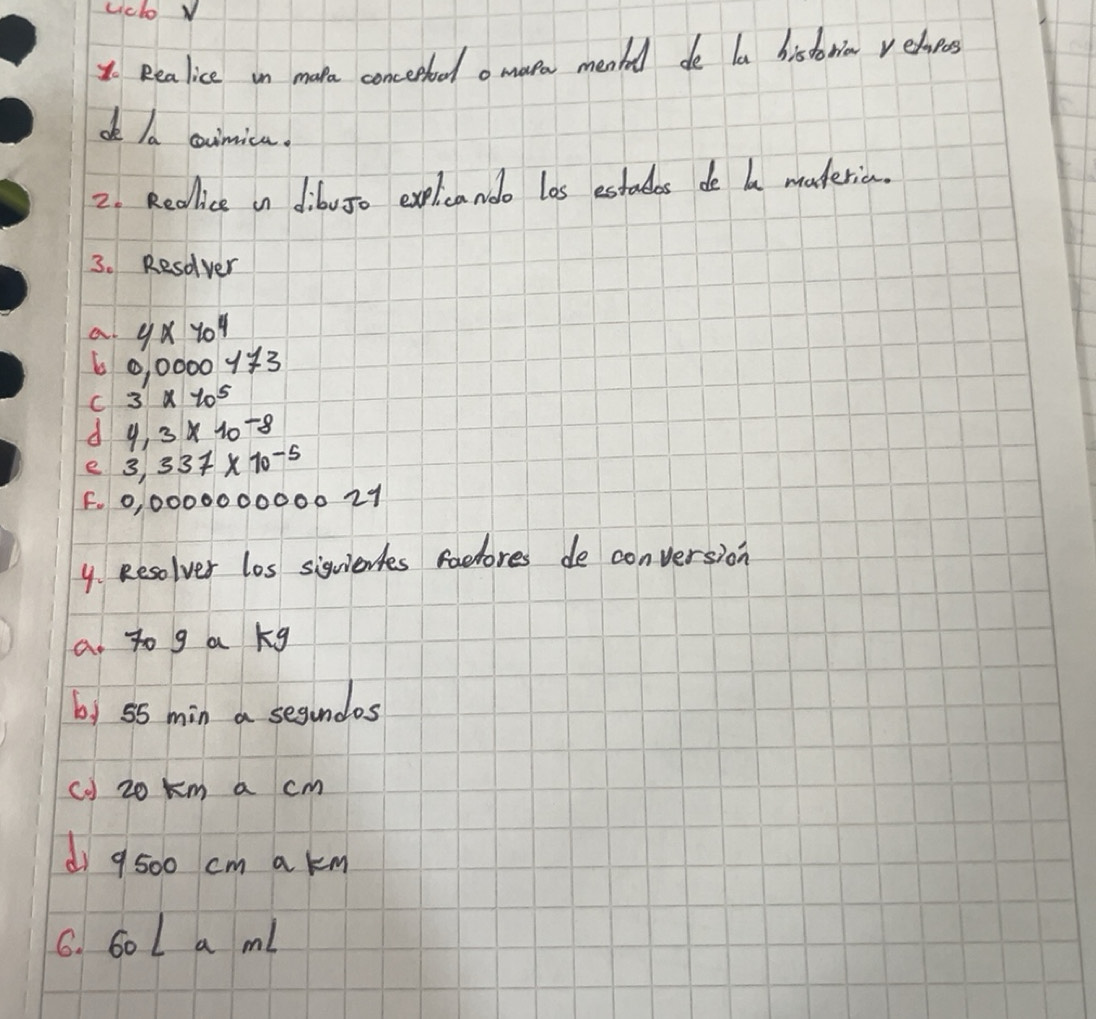 Ciclo V
1. Realice un mapa conceptual o mapa mental de la historia y etapas
de la química.
2. Realice un dibujo explicando los estados de la materia.
3. Resolver
a. 4 x 10⁴
b 0,0000 173
c 3 x 10⁵
d 4,3 x 10⁻⁸
e 3,337 x 10⁻⁵
F. 0,0000000000 21
4. Resolver los siguientes factores de conversión
a. 70 g a kg
b) 55 min a segundos
c) 20 km a cm
d) 9500 cm a km
6. 60 L a mL